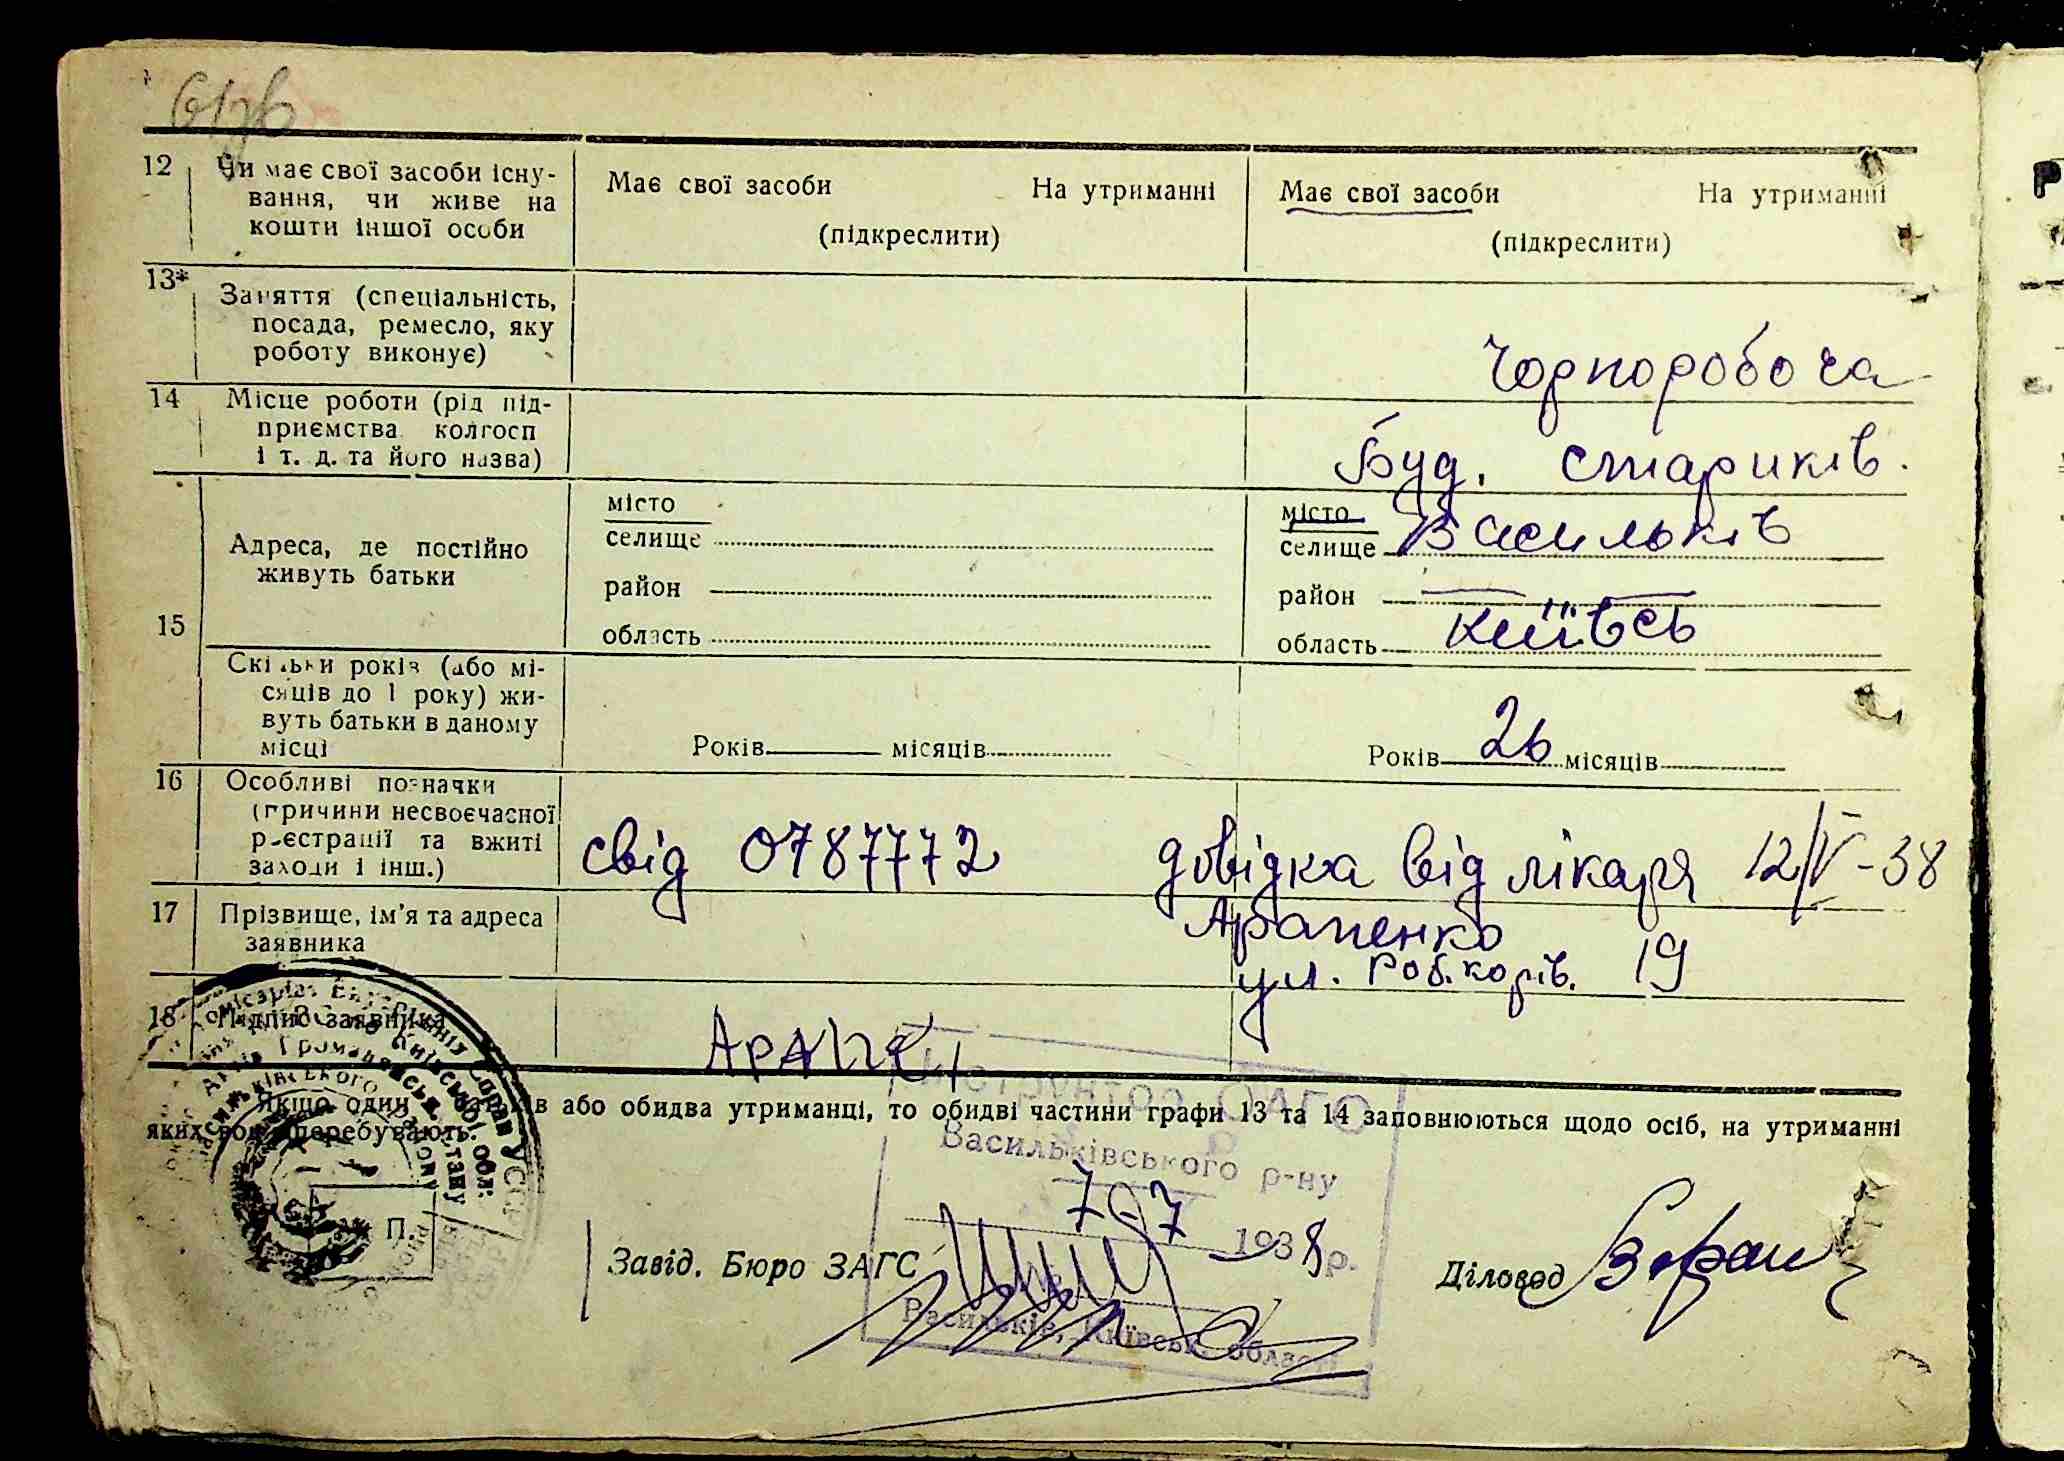 12 Чи має свої засоби існу-
вання, чи живе на
кошти іншої особи
Має свої засоби На утриманні
(підкреслити)
Має свої засоби На утриманні
(підкреслити)
13* Заняття (спеціальність,
посада, ремесло, яку
роботу виконує)
Чорноробоча
14 Місце роботи (рід під-
приємства колгосп
і т. д. та його назва)
Буд. стариків.
15
Адреса, де постійно
живуть батьки
місто
селище
район
область
місто
селище Васильків
район —
область Київсь
Скільки років (або мі-
сяців до 1 року) жи-
вуть батьки в даному
місці
Років місяців
Років 26 місяців
16 Особливі позначки
(причини несвоєчасної
реєстрації та вжиті
заходи і інш.)
свід 0787772 довідка від лікаря 12/V-38
17 Прізвище, ім'я та адреса
заявника
Арапенко
ул. Робкорів. 19
18 Підпис заявника
Якщо один або обидва утриманці, то обидві частини графи 13 та 14 заповнюються щодо осіб, на утриманні
яких вони перебувають.
Васильківського р-ну
7-7 1938 р.
Завід. Бюро ЗАГС
Діловод
Васильків, Київськ. області